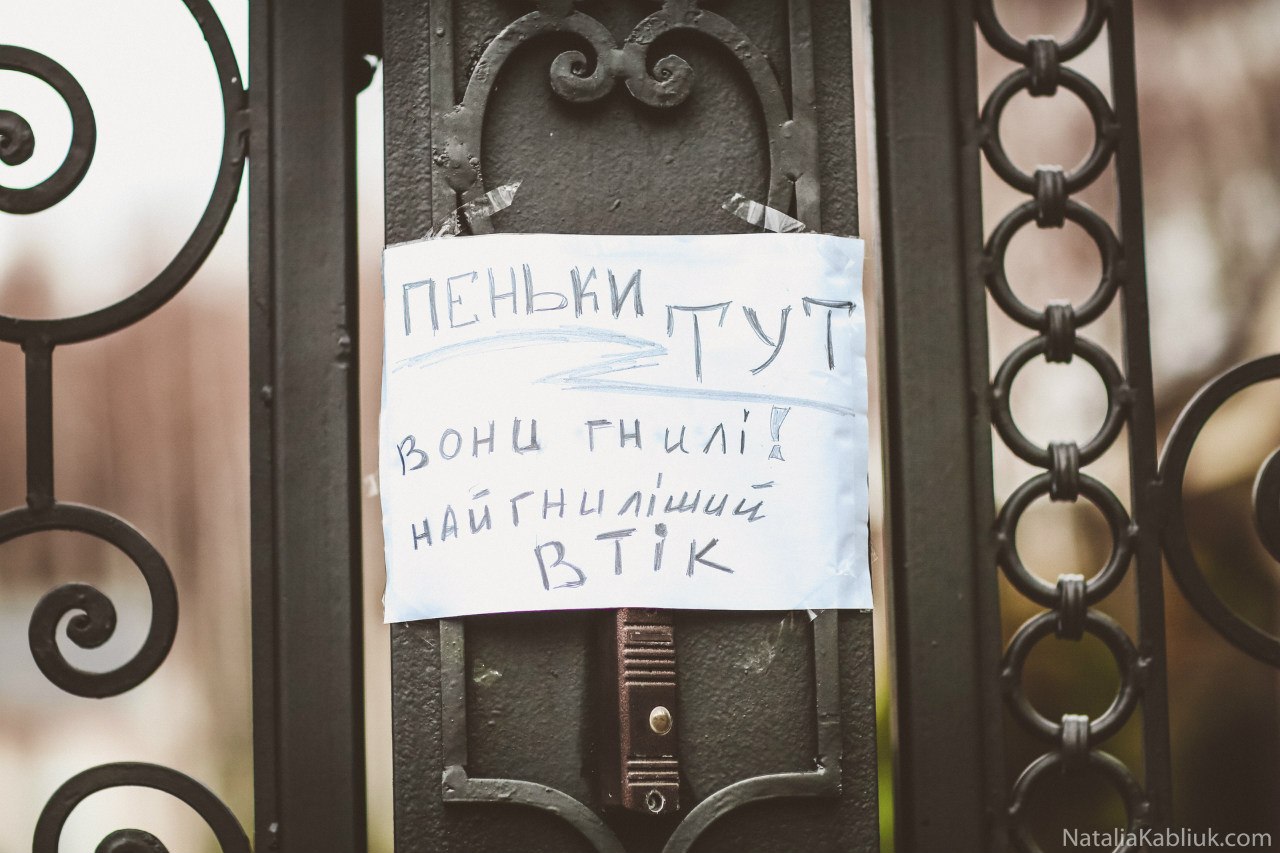 ПЕНЬКИ ТУТ
ВОНИ ГНИЛІ!
НАЙГНИЛІШИЙ
ВТІК
NataliaKabliuk.com